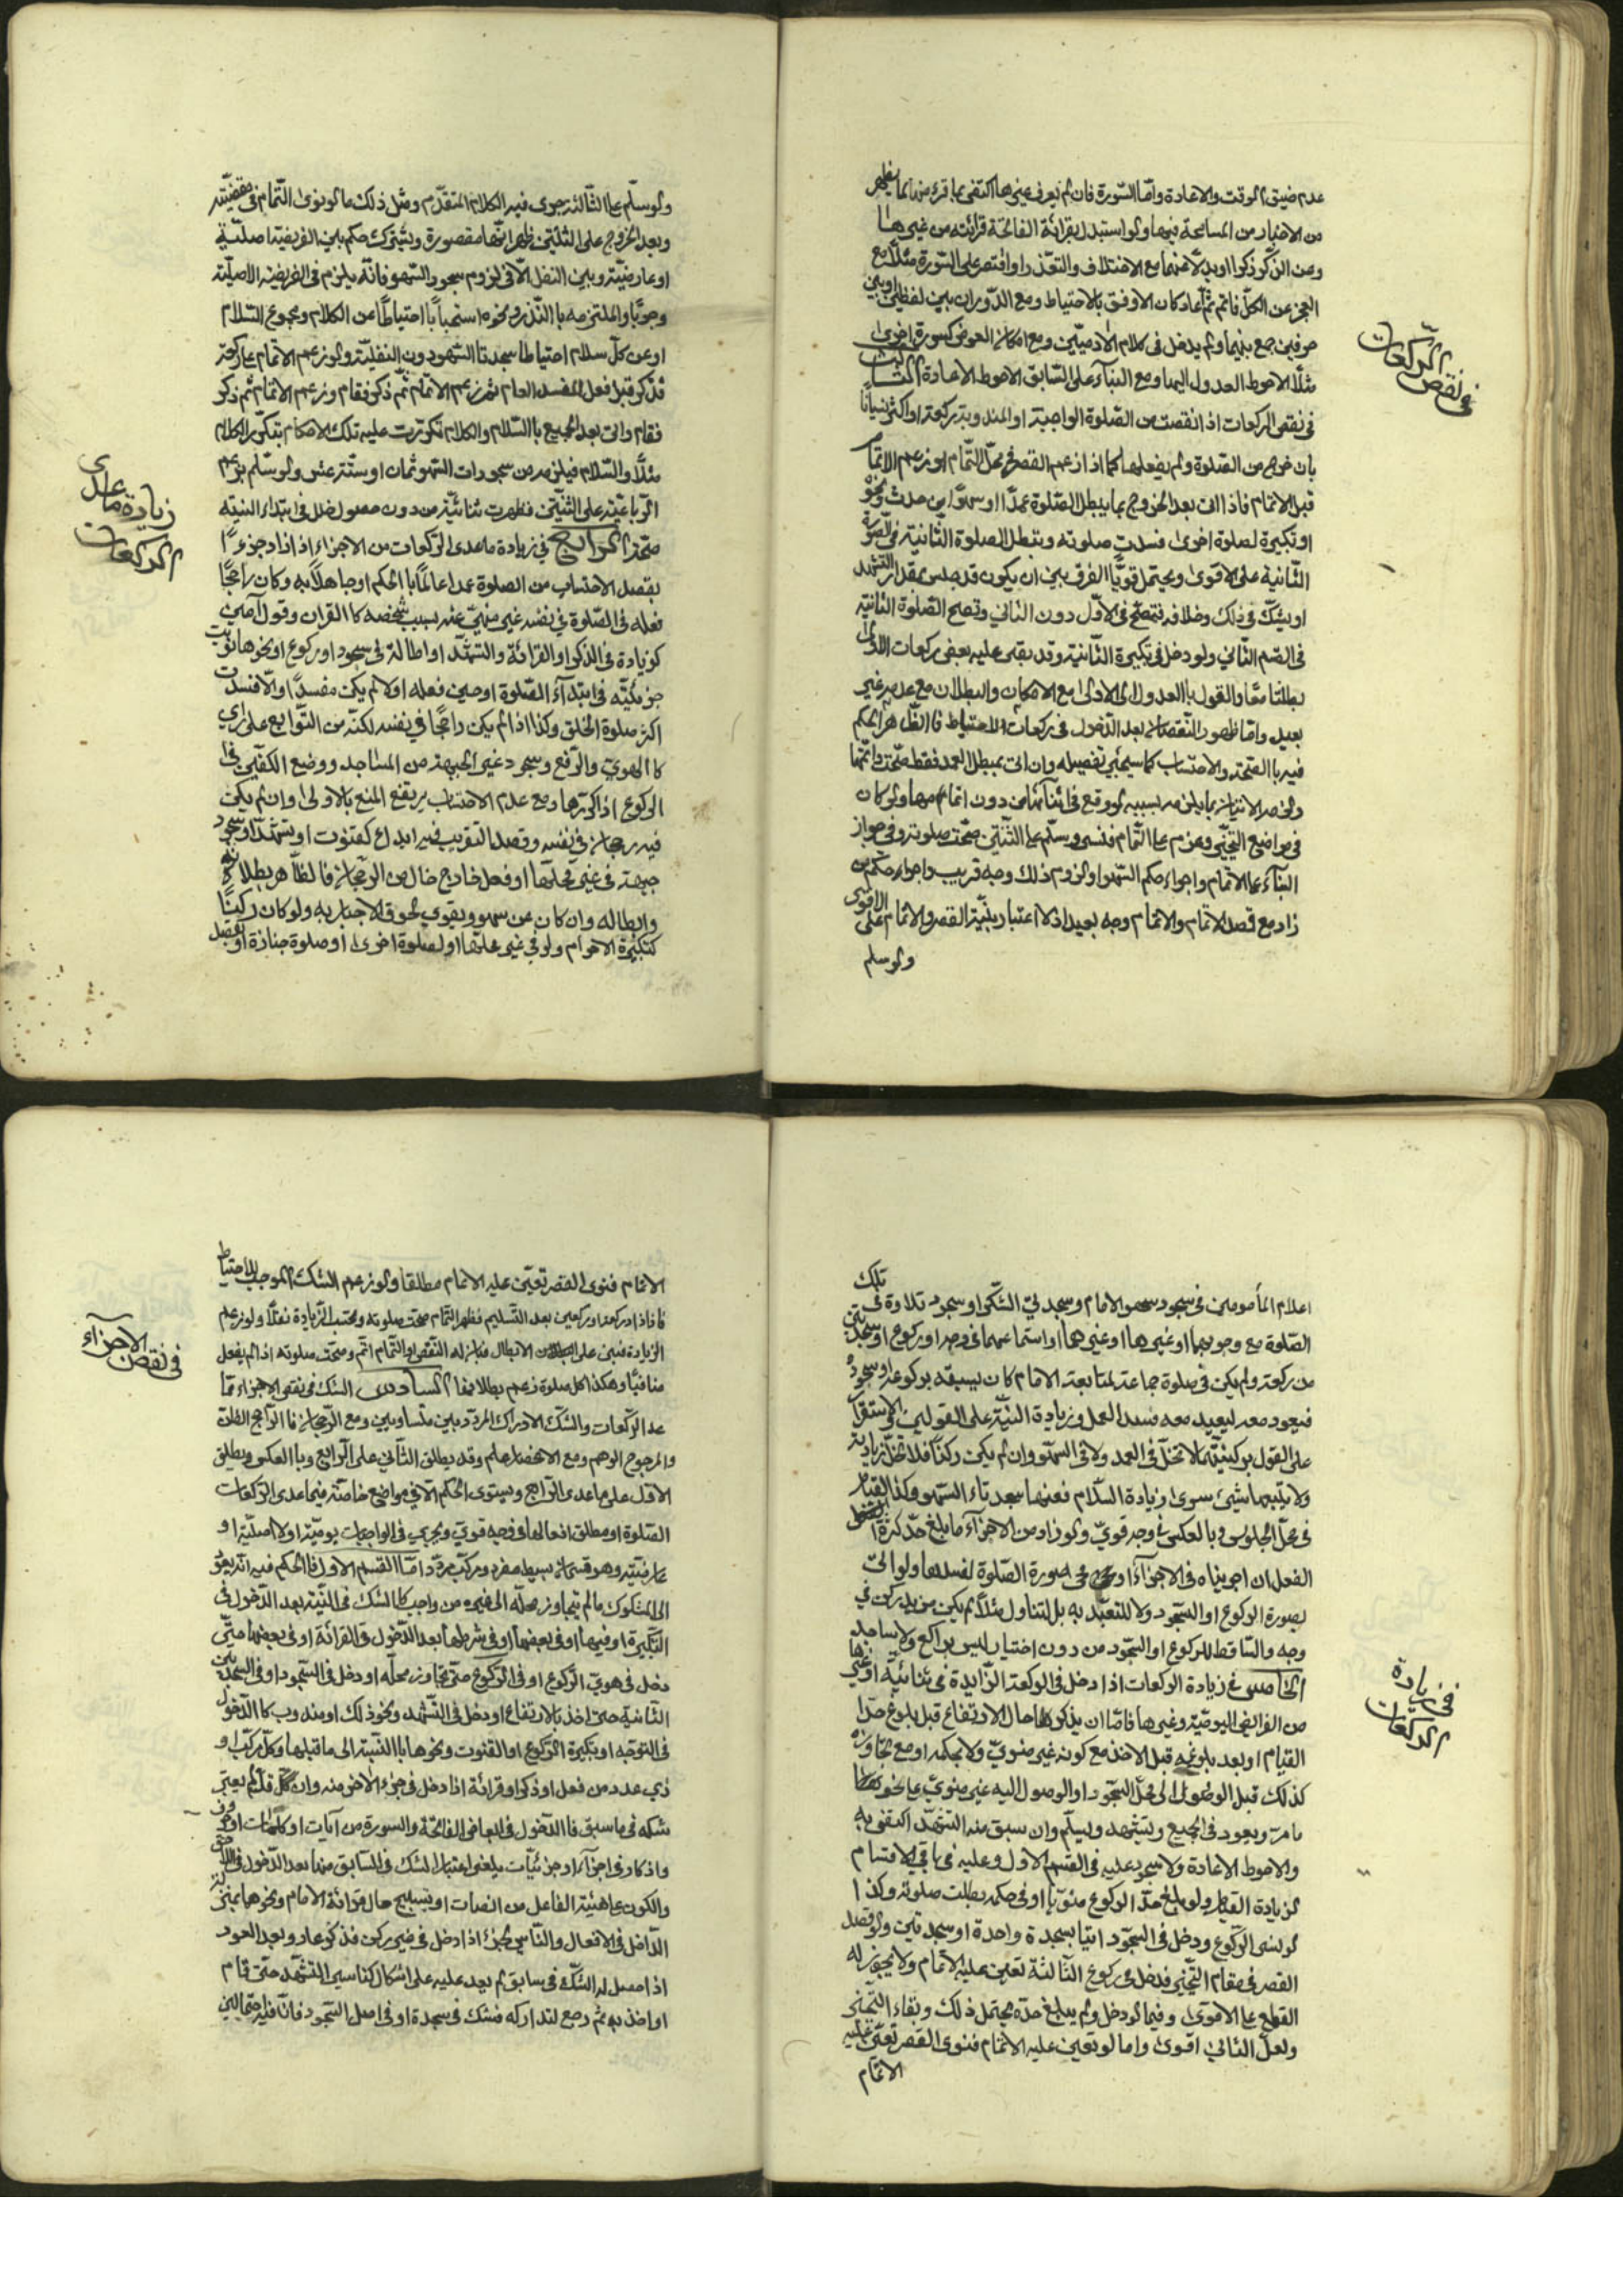 عدم ضيق الوقت والاعادة وامّا السّورة فان لم يعرف غيرها اكتفى بما قرء منها كما يظهر
من الاخبار من المسامحة فيها ولو استبدل بقرائة الفاتحة قرائته من غيرها
وعن الذّكر ذكرا او بدلا عنهما مع الاختلاف والتعذّر او اقتصر على السّورة مثلا مع
العجز عن الكلّ فاتم ثمّ اعاد كان الاوفق بالاحتياط ومع الدّوران بين لفظين او بين
حرفين جمع بينهما ولم يدخل في كلام الادميّين ومع امكان العوض كسورة اخرى
مثلًا الاحوط العدول اليها ومع البناء على السّابق الاحوط الاعادة الثالث
في نقص الركعات اذا نقصت من الصّلوة الواجبة او المندوبة ركعة او اكثر نسيانًا
بان خرج من الصّلوة ولم يفعلها كما اذا زعم القصر في محلّ التّمام او زعم الاتمام
قبل الاتمام فاذا اتى بعد الخروج بما يبطل الصّلوة عمدًا او سهوًا من حدث ونحوه
او تكبيرة لصلوة اخرى فسدت صلوته وتبطل الصلوة الثّانية في الصّورة
الثّانية على الاقوى ويحتمل قويًّا الفرق بين ان يكون قد جلس بمقدار التشهد
او يشكّ في ذلك وخلافه فتصحّ في الاوّل دون الثاني وتصح الصّلوة الثانية
في القسم الثّاني ولو دخل في تكبيرة الثّانية وقد بقى عليه بعض ركعات الاولى
بطلتا معًا والقول بالعدول الى الاولى مع الامكان والبطلان مع عدمه غير
بعيد وامّا ظهور النّقصان بعد الدّخول في ركعات الاحتياط فالظّاهر الحكم
فيه بالصّحّة والاحتساب كما سيجئ تفصيله وان اتى بمبطل العمد فقط صحّت واتمّها
ولزمه الاتيان بما يلزمه بسببه لو وقع في اثنائها من دون اتمام مها ولو كان
في مواضع التّخيير وعزم على التّمام فنسى وسلّم على الثّنتين صحّت صلوته وفي جواز
البناء على الاتمام واجراء حكم السّهو او لزوم ذلك وجه قريب واجراء حكم من
زاد مع قصد الاتمام والاتمام وجه بعيد اذ لا اعتبار بنيّة القصر والاتمام على الاقوى
ولو سلم
في نقص الركعات
ولو سلّم على الثّالثة جرى فيه الكلام المتقدّم ومثل ذلك ما لو نوى التّمام في مقضيّته
وبعد الخروج على الثلثين ظهر انّها مقصورة ويشترك حكم بين الفريضة اصليّة
او عارضيّة وبين النفل الّا في لزوم سجود السّهو فانّه يلزم في الفريضة الاصليّة
وجوبًا والملتزمه بالنّذر ونحوه استحبابًا احتياطًا عن الكلام ومجموع السّلام
او عن كلّ سلام احتياطا سجدتا السّهو دون النفليّة ولو زعم الاتمام على ركعة
فذكر قبل فعل المفسد العام ثم زعم الاتمام ثمّ ذكر فقام وزعم الاتمام ثم ذكر
فقام واتى بعد الجميع بالسّلام والكلام تكرّرت عليه تلك الاحكام بتكرّر الكلام
مثلًا والسّلام فيلزمه من سجودات السّهو ثمان او ستّة عشر ولو سلّم بزعم
الرّباعيّة على الثنتين فظهرت ثنائيّة من دون حصول خلل في ابتداء النيّة
صحّت الرّابع في زيادة ماعدى الرّكعات من الاجزاء اذا زاد جزءًا
بقصد الاحتساب من الصلوة عمدا عالمًا بالحكم او جاهلًا به وكان راجحًا
فعله في الصّلوة في نفسه غير منهيّ عنه بسبب شخصه كالقران وقول آمين
كزيادة في الذكر او القرائة والتشهّد او اطالة في سجود او ركوع او نحوها نويت
جزئيّته في ابتداء الصّلوة او حين فعله اولا لم يكن مفسدًا والّا فسدت
اكثر صلوة الخلق وكذا اذا لم يكن راجحًا في نفسه لكنّه من التّوابع على راي
كالهويّ والرّفع وسجود غير الجبهة من المساجد ووضع الكفّين في
الركوع اذا كرّرها ومع عدم الاحتساب يرتفع المنع بالاولى وان لم يكن
فيه رجحان في نفسه وقصد التقريب فيه ابداع كقنوت او تشهّد او سجود
جبهة في غير محلّها او فعل خارج خال من الرّجحان فالظّاهر بطلانه
وابطاله وان كان عن سهو ويقوى لحوق الاجبار به ولو كان ركنًا
كتكبيرة الاحرام ولو في غير محلّها او لصلوة اخرى او صلوة جنازة او بقصد
زيادة ماعدى
الركعات
اعلام المأمومين في سجود سهو الامام وسجدتي الشّكر او سجود تلاوة في تلك
الصّلوة مع وجوبهما او غيرها او غيرها او استماعهما في وجه او ركوع او سجدتين
من ركعة ولم يكن في صلوة جماعة لمتابعة الامام كان يسبقه بركوع او سجود
فيعود معه ليعيد معه فسد العمل وزيادة النيّة على القولين والاستقرار
على القول بركنيّتهما لا تخلّ في العمد ولا في السهو وان لم يكن ركنًا فلا تخلّ زيادته
ولا يلتمها بشئ سوى زيادة السّلام فعنها سجدتاء السّهو وكذا القيام
في محلّ الجلوس وبالعكس على وجه قويّ ولو زاد من الاجزاء ما بلغ حدّ كثرة الشغل
الفعل ان اجريناه في الاجزاء او محى صورة الصّلوة لفسدها ولو اتى
بصورة الركوع او السّجود ولا للتعبّد به بل لتناول مثلًا لم يكن مزيد ركن في
وجه والسّاقط للركوع او السّجود من دون اختيار ليس براكع ولا بساجد
الخامس في زيادة الركعات اذا دخل في الركعة الزّايدة في ثنائيّة او غيرها
من الفرائض اليوميّة وغيرها فامّا ان يذكرها حال الارتفاع قبل بلوغ حدّ
القيام او بعد بلوغه قبل الاخذ مع كونه غير منويّ ولا بحكمه او مع تجاوزه
كذلك قبل الوصول الى محلّ السّجود او الوصول اليه غير منويّ على نحو
ما مرّ ويعود في الجميع ويتشهد ويسلّم وان سبق منه التشهّد اكتفى به
والاحوط الاعادة ولا سجود عليه في القسم الاول وعليه في باقي الاقسام
لزيادة القيام ولو بلغ حدّ الركوع منويًا او في حكمه بطلت صلوته وكذا
لو نسى الرّكوع ودخل في السّجود اتيا بسجدة واحدة او سجدتين ولو قصد
القصر في مقام التّخيير فدخل في ركوع الثّالثة تعيّن عليه الاتمام ولا يجوز له
القطع على الاقوى وفيما لو دخل ولم يبلغ حدّه يحتمل ذلك وبقاء التّخيير
ولعلّ الثاني اقوى واما لو تعيّن عليه الاتمام فنوى القصر تعيّن عليه
الاتمام
في زيادة
الركعات
الاتمام فنوى القصر تعيّن عليه الاتمام مطلقا ولو زعم الشك الموجب للاحتياط
فافاد ركعة او ركعتين بعد التّسليم فظهر التّمام صحّت صلوته وتحتسب الزّيادة نفلًا ولو زعم
الزيادة فبنى على الابطال فبان له النّقص او التّمام اتمّ وصحّت صلوته اذا لم يفعل
منافيًا وهكذا كل صلوة زعم بطلانها السادس الشك في نقص الاجزاء ممّا
عدا الرّكعات والشّك الادراك المردّد بين متساويين ومع الرّجحان فالرّاجح الظنّ
والمرجوح الوهم ومع الانحصار علم وقد يطلق الثّاني على الرّابع وبالعكس ويطلق
الاوّل على ماعدى الرّاجح ويستوى الحكم الّا في مواضع خاصّة فيما عدى الرّكعات
الصّلوة او مطلق افعالها في وجه قويّ ويجري في الواجبات يوميّة اولا اصليّة او
عارضيّة وهو قسمان بسيط مفرد ومركّب مردّد امّا القسم الاول فالحكم فيه انّه يعود
الى المشكوك ما لم يتجاوز محلّه الى غيره من واجب كالشك في النّيّة بعد الدّخول في
التّكبيرة او فيها او في بعضها او في شرطها بعد الدّخول في القرائة او في بعضها حتّى
دخل في هويّ الرّكوع او في الرّكوع حتّى تجاوز محلّه او دخل في السّجود او في السجدتين
الثّانية حتى اخذ بالارتفاع او دخل في التّشهد ونحو ذلك او مندوب كالدّخول
في التوجه او تكبيرة الرّكوع او القنوت ونحوها بالنّسبة الى ما قبلها وكلّ مركّب او
ذي عدد من فعل او ذكر او قرائة اذا دخل في جزء الاخر منه وان قلّ لم يعتبر
شكه في ما سبق فالدّخول في ابعاض الفاتحة والسورة من آيات او كلمات او حروف
واذكار في اجزاء او جزئيّات يلغى اعتبار الشك في السّابق منها بعد الدّخول في اللّاحق
والكون على هيئة الفاعل من انصات او تسبيح حال قرائة الامام ونحوها بمنزلة
الدّاخل في الافعال والنّاسي لجزء اذا دخل في غير ركن فذكر عاد وبعد العود
اذا حصل له الشّك في سابق لم يعد عليه على اشكال كناسي التشهّد حتّى قام
او اخذ به ثمّ رجع لتداركه فشك في سجدة او في اصل السّجود فانّ فيه احتمالين
في نقص الاجزاء